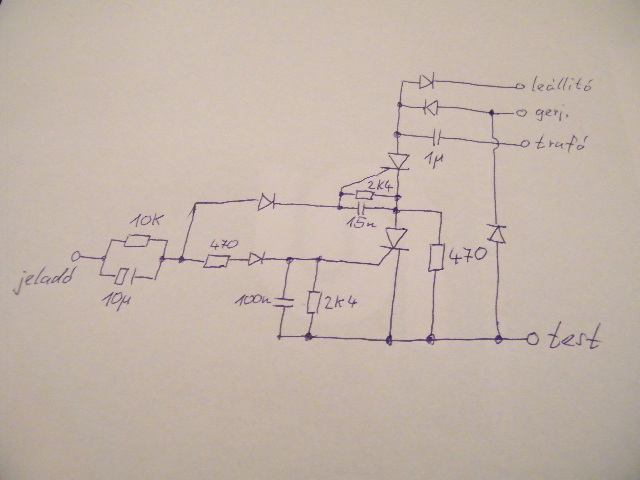 leállító
gerj.
trafó
1µ
2K4
15n
10K
470
470
jeladó
10µ
100n
2K4
test